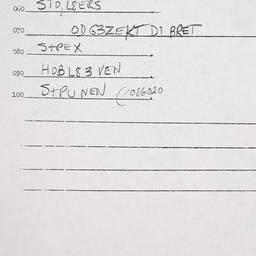 060 STO,L8ERS
070 OD G3ZEKT D1 BRET
080 S+PEX
090 HOBL83VEN
100 S+PUNEN (086020